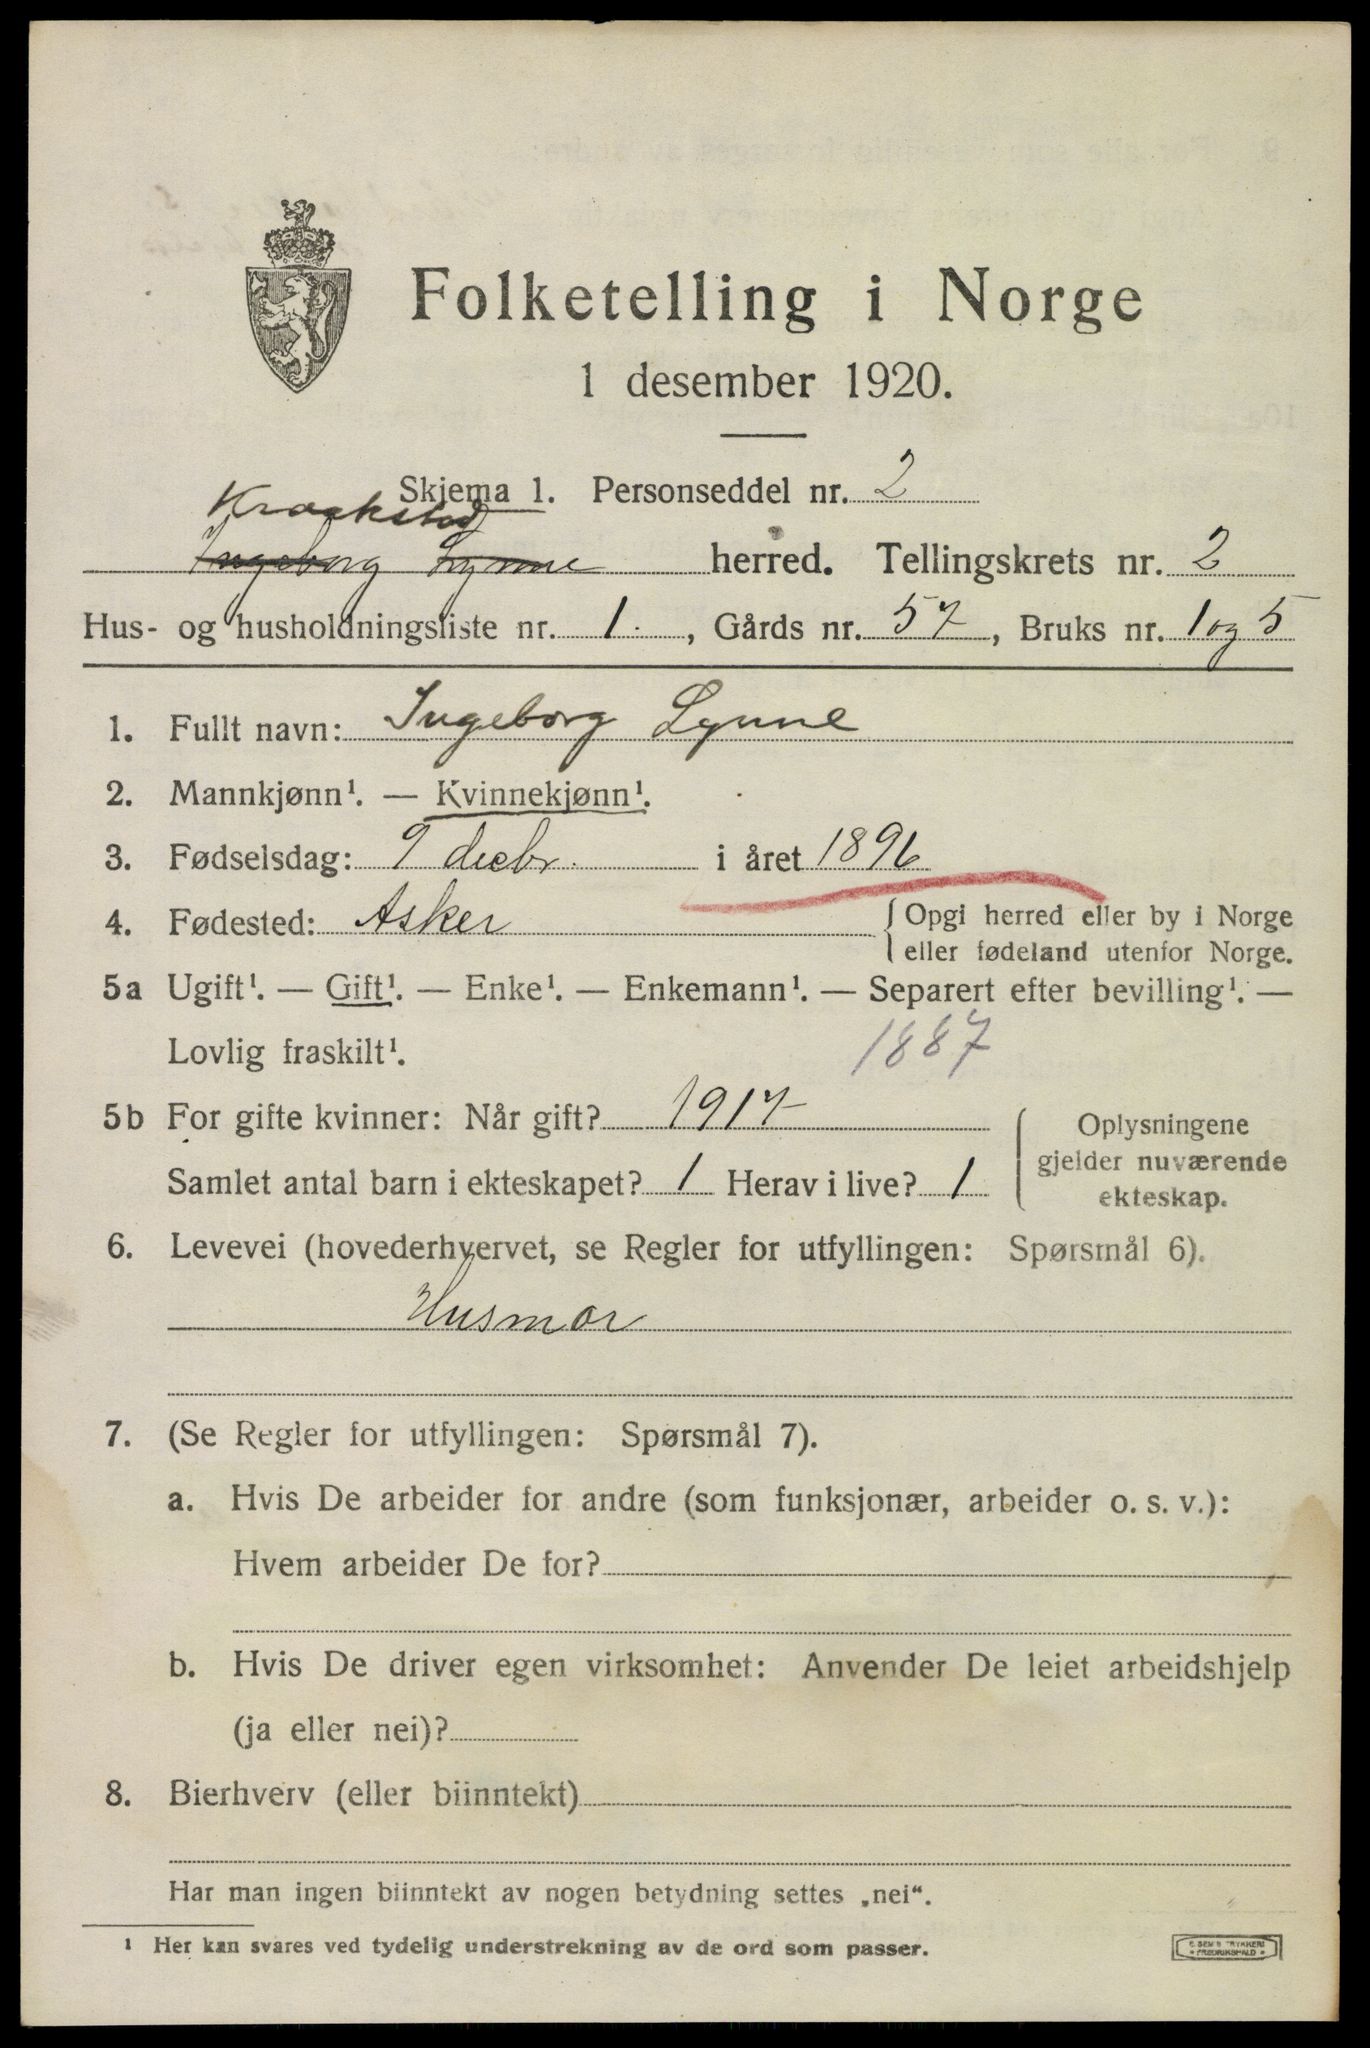 Folketelling i Norge
1 desember 1920.
Skjema 1. Personseddel nr. 2
Kraakstad
Ingeborg Lynne herred. Tellingskrets nr. 2
Hus- og husholdningsliste nr. 1. , Gårds nr. 57, Bruks nr. 1 og 5
1. Fullt navn: Ingeborg Lynne
2. Mannkjønn¹. — Kvinnekjønn¹.
3. Fødselsdag: 9 decbr. i året 1896
4. Fødested: Asker { Opgi herred eller by i Norge
eller fødeland utenfor Norge.
5a Ugift¹. — Gift¹. — Enke¹. — Enkemann¹. — Separert efter bevilling¹. —
Lovlig fraskilt¹. 1887
5b For gifte kvinner: Når gift? 1917
Samlet antal barn i ekteskapet? 1 Herav i live? 1
Oplysningene
gjelder nuværende
ekteskap.
6. Levevei (hovederhvervet, se Regler for utfyllingen: Spørsmål 6).
Husmor
7. (Se Regler for utfyllingen: Spørsmål 7).
a. Hvis De arbeider for andre (som funksjonær, arbeider o. s. v.):
Hvem arbeider De for?
b. Hvis De driver egen virksomhet: Anvender De leiet arbeidshjelp
(ja eller nei)?
8. Bierhverv (eller biinntekt)
Har man ingen biinntekt av nogen betydning settes „nei“.
¹ Her kan svares ved tydelig understrekning av de ord som passer.
E. SEM'S TRYKKERI
FREDRIKSHALD